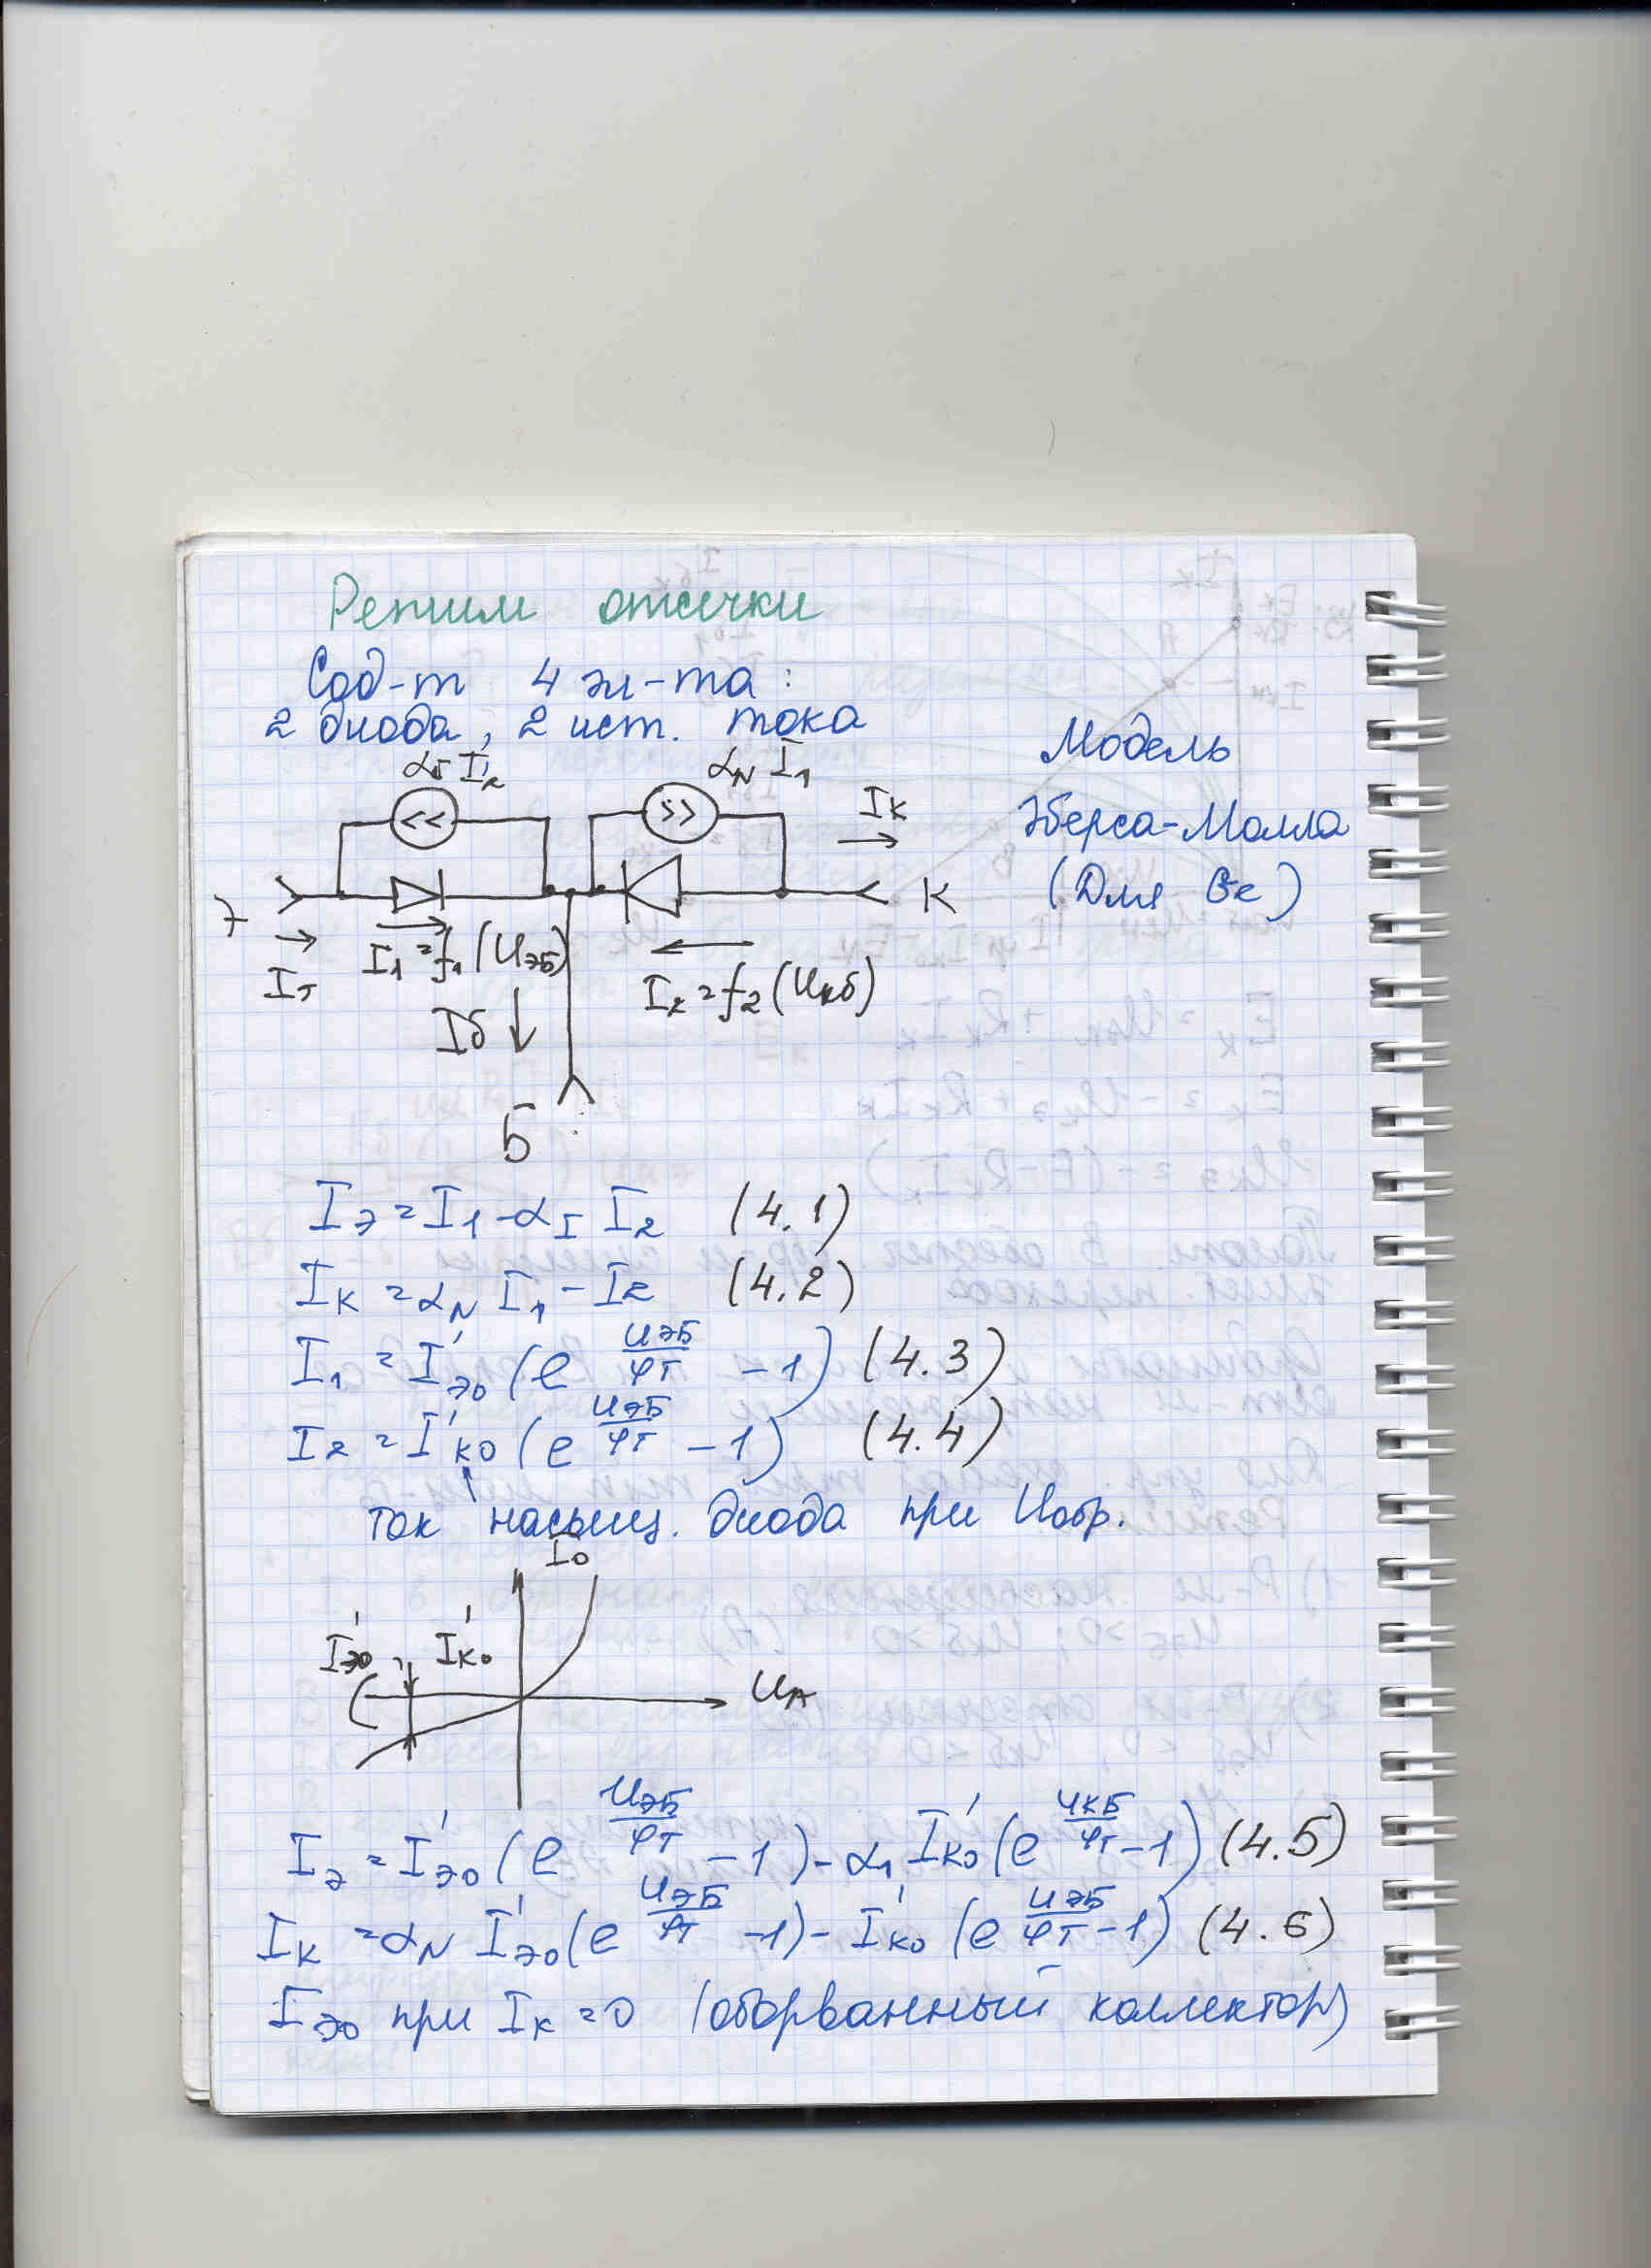 Режим отсечки
Сод-т 4 эл-та:
2 диода, 2 ист. тока
Модель
Эберса-Молла
(Для Ge)
α_I I_2
α_N I_1
I_К
Э
К
I_Э
I_1 = f_1 (U_ЭБ)
I_2 = f_2 (U_кб)
I_б
Б
I_Э = I_1 - α_I I_2 (4.1)
I_К = α_N I_1 - I_2 (4.2)
I_1 = I'_ЭО (e^(U_ЭБ/φ_T) - 1) (4.3)
I_2 = I'_КО (e^(U_ЭБ/φ_T) - 1) (4.4)
ток насыщ. диода при U_обр.
I_0
I'_ЭО I'_КО
U_А
I_Э = I'_ЭО (e^(U_ЭБ/φ_T) - 1) - α_1 I'_КО (e^(U_КБ/φ_T) - 1) (4.5)
I_К = α_N I'_ЭО (e^(U_ЭБ/φ_T) - 1) - I'_КО (e^(U_ЭБ/φ_T) - 1) (4.6)
I_ЭО при I_К = 0 (оборванный коллектор)